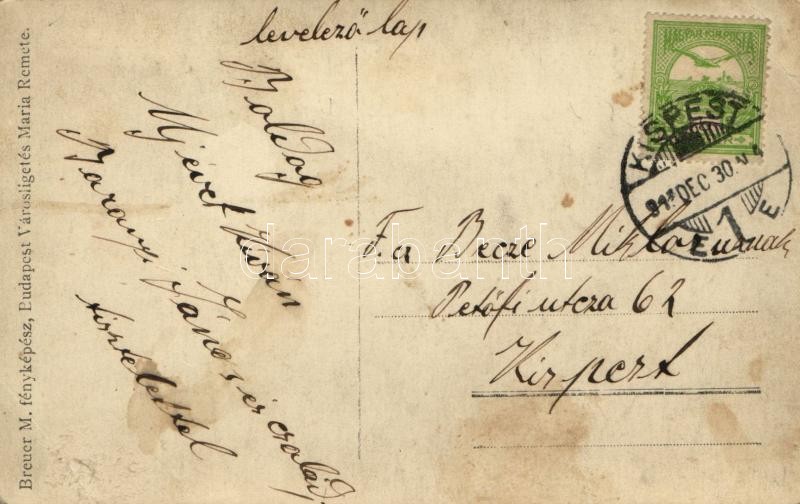 levelező lap
Boldog
Ujévet kiván
Baranyi János és család
tisztelettel
Breuer M. fényképész, Budapest Városligetés Maria Remete.
MAGYAR KIR. POSTA
KISPEST
DEC 30
1
E E
F. a Becze Miklos urnak
Petőfi utcza 62
Kispest
darabanth